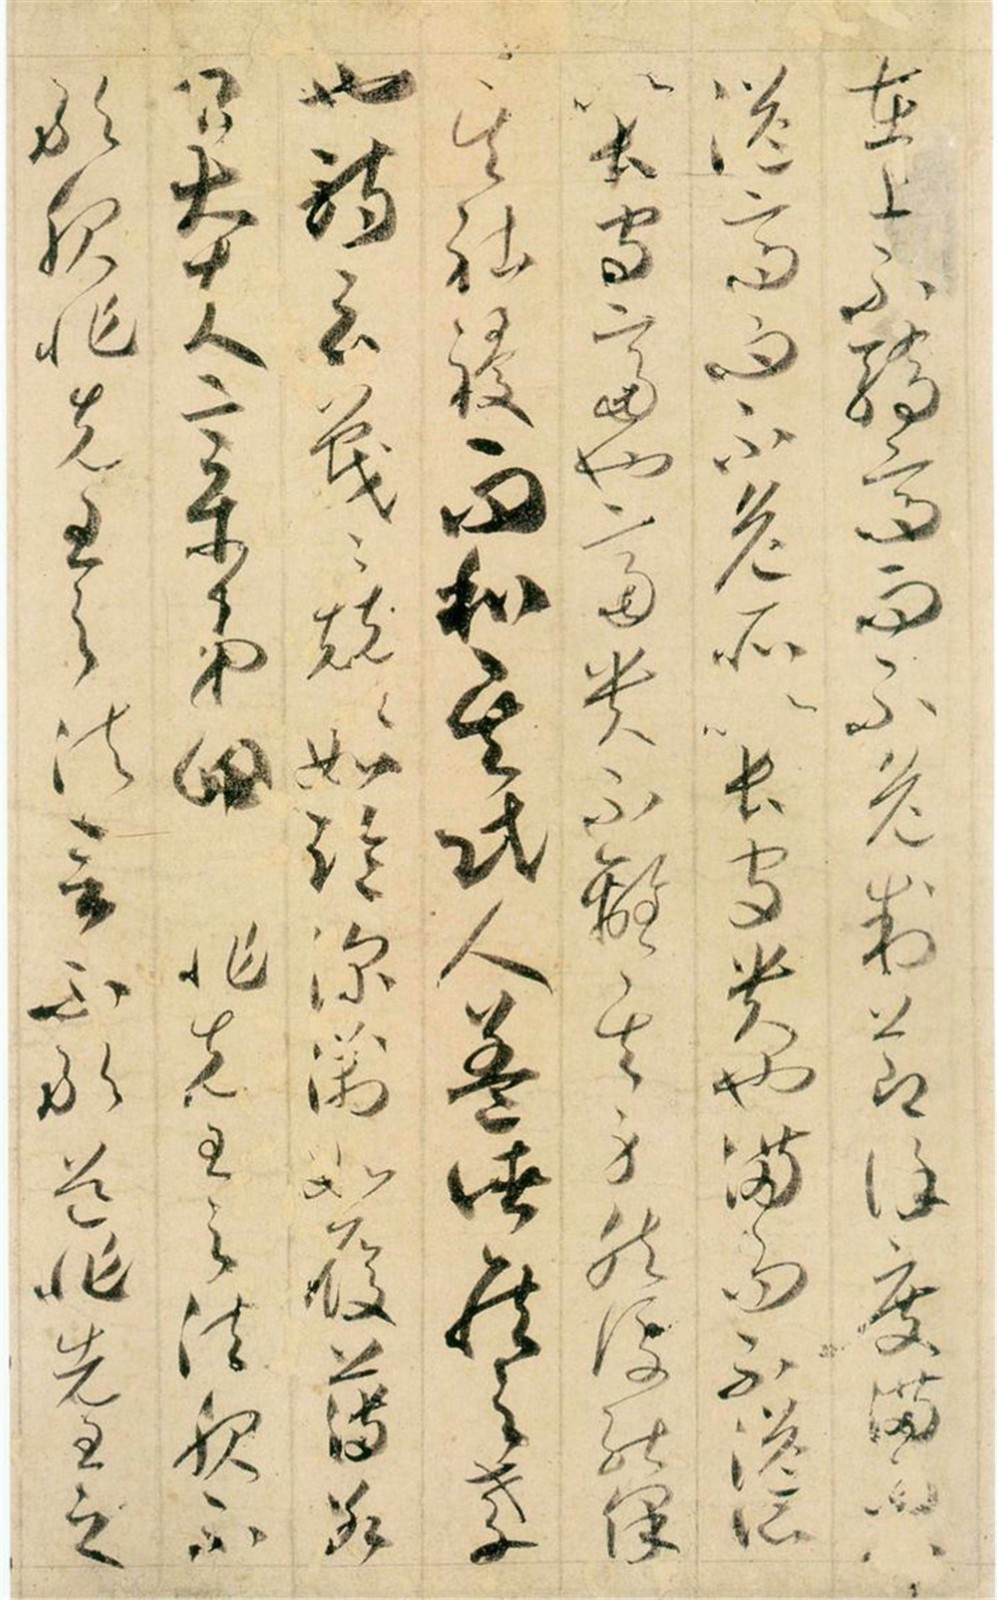 在上不驕高而不危制節謹度滿而不
溢高而不危所以長守貴也滿而不溢所
以長守富也富貴不離其身然後能保
其社稷而和其民人蓋諸侯之孝
也詩云戰〻兢〻如臨深淵如履薄冰
卿大夫章弟四 非先王之法服不
敢服非先王之法言不敢道非先王之